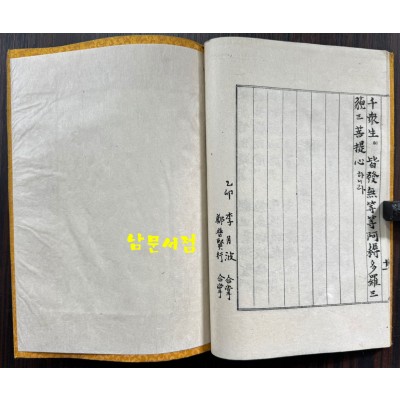 千衆生이 皆發無等等阿耨多羅三
藐三菩提心하니라
乙卯 李月波 合掌
鄭普賢行 合掌
삼문서점